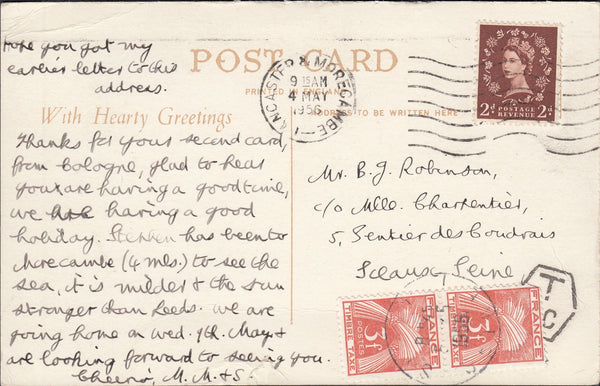 Hope you got my
earlier letter to this
address.
POST CARD
PRINTED IN ENGLAND
With Hearty Greetings
ADDRESS TO BE WRITTEN HERE
LANCASTER & MORECAMBE
9 15 AM
4 MAY
1956
2D POSTAGE REVENUE 2D
Thanks for your second card,
from Cologne, glad to hear
you are having a good time,
we are having a good
holiday. Stephen has been to
Morecambe (4 mls.) to see the
sea, it is milder & the sun
stronger than Leeds. We are
going home on Wed. 9th. May &
are looking forward to seeing you.
Cheerio, M. M. & S.
Mr. B. J. Robinson,
c/o Mlle. Charpentier,
5, Sentier des Coudrais
Sceaux, Seine
T.C
3F FRANCE TIMBRE TAXE
3F FRANCE TIMBRE TAXE